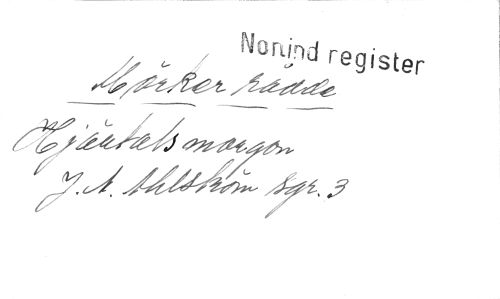 Nonind register
Mörker rådde
Hjärtats morgon
J. A. Ahlström sgr. 3